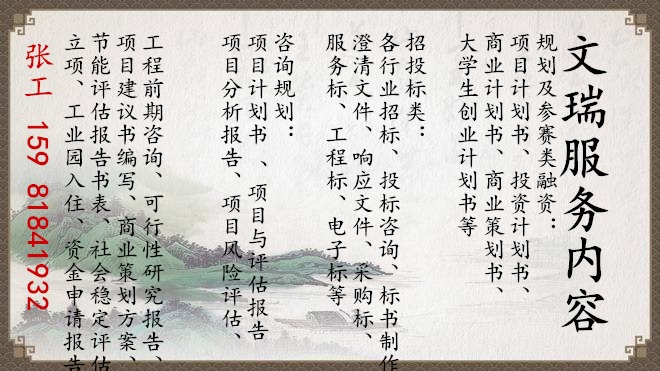 文瑞服务内容
规划及参赛类融资：
项目计划书、投资计划书、
商业计划书、商业策划书、
大学生创业计划书等
招投标类：
各行业招标、投标咨询、标书制作
澄清文件、响应文件、采购标、
服务标、工程标、电子标等
咨询规划：
项目计划书 、项目与评估报告
项目分析报告、项目风险评估、
工程前期咨询、可行性研究报告、
项目建议书编写、商业策划方案、
节能评估报告书表、社会稳定评估
立项、工业园入住、资金申请报告
张工 159 81841932